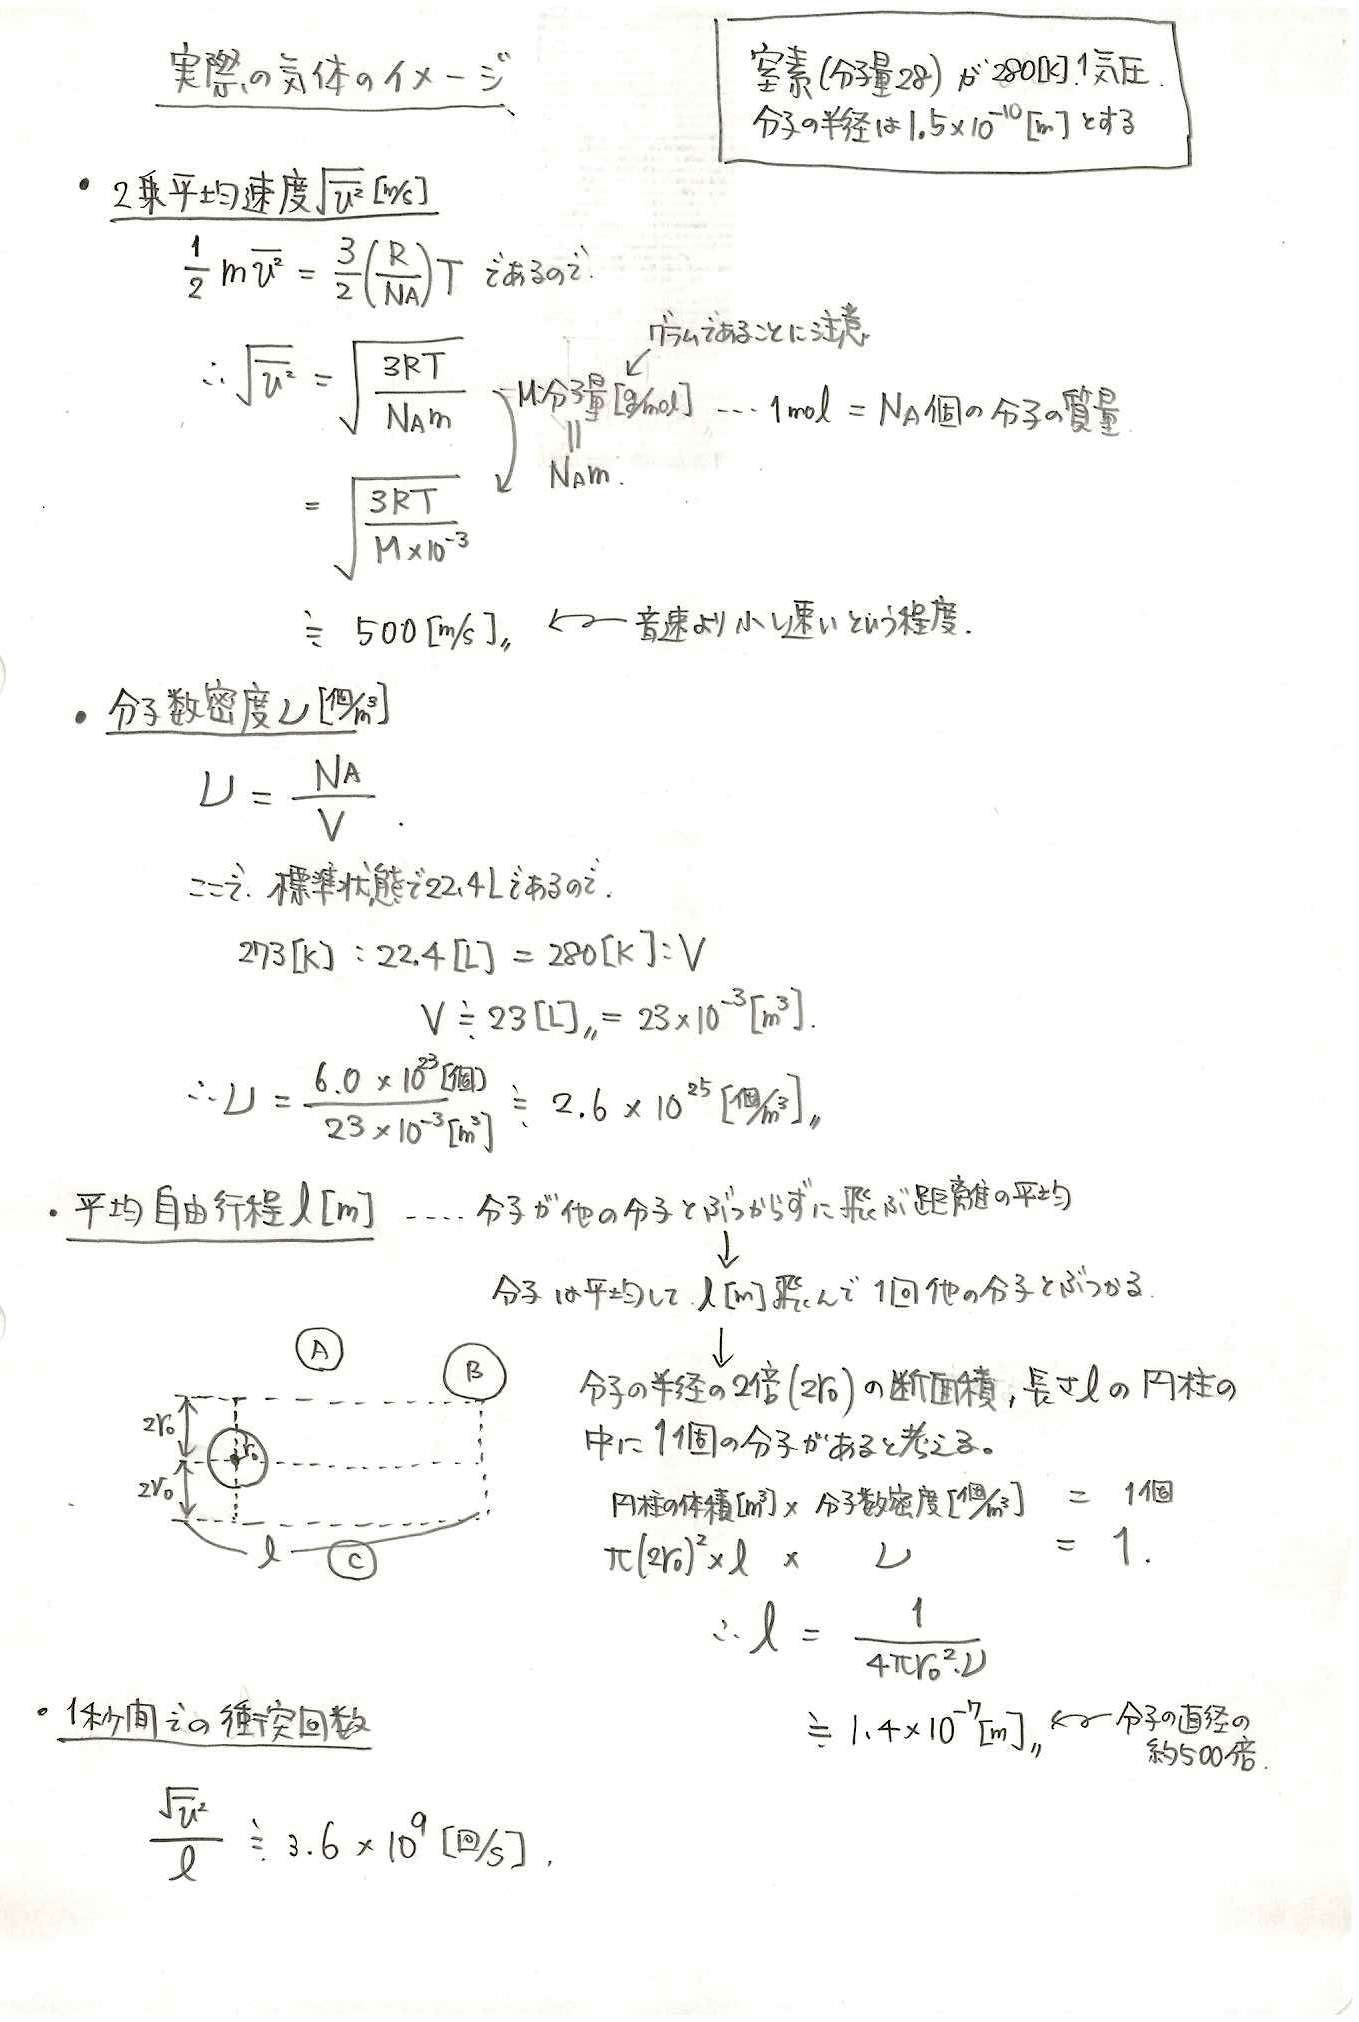 実際の気体のイメージ
窒素(分子量28)が280[K].1気圧.
分子の半径は1.5×10⁻¹⁰[m]とする
・2乗平均速度√v̅² [m/s]
1/2 m v̅² = 3/2 (R/NA)T であるので.
∴√v̅² = √(3RT/NAm)
グラムであることに注意.
M:分子量[g/mol] ‥‥ 1mol = NA個の分子の質量
=
NAm.
= √(3RT/M×10⁻³)
≒ 500[m/s]〃 ← 音速より少し速いという程度.
・分子数密度ν[個/m³]
ν = NA/V.
ここで.標準状態で22.4Lであるので.
273[K]:22.4[L] = 280[K]:V
V≒23[L]〃= 23×10⁻³[m³].
∴ν = 6.0×10²³[個]/23×10⁻³[m³] ≒ 2.6×10²⁵[個/m³]〃
・平均自由行程l[m] ‥‥ 分子が他の分子とぶつからずに飛ぶ距離の平均
↓
分子は平均して.l[m]飛んで1回他の分子とぶつかる.
↓
A
B
2r₀
r₀
2r₀
l
C
分子の半径の2倍(2r₀)の断面積,長さlの円柱の
中に1個の分子があると考える。
円柱の体積[m³]×分子数密度[個/m³] = 1個
π(2r₀)²×l × ν = 1.
∴l = 1/4πr₀²・ν
≒ 1.4×10⁻⁷[m]〃 ← 分子の直径の
約500倍.
・1秒間での衝突回数
√v̅²/l ≒ 3.6×10⁹[回/s].